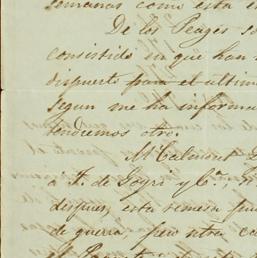 semanas como esta en
De los Peages so
consistido en que han
dispuesto para el ultim
segun me ha informa
tendremos otro.
Mr Calmont
a F. de Goyri y Ca,
despues, esta remesa fu
de guerra, pero otra ca